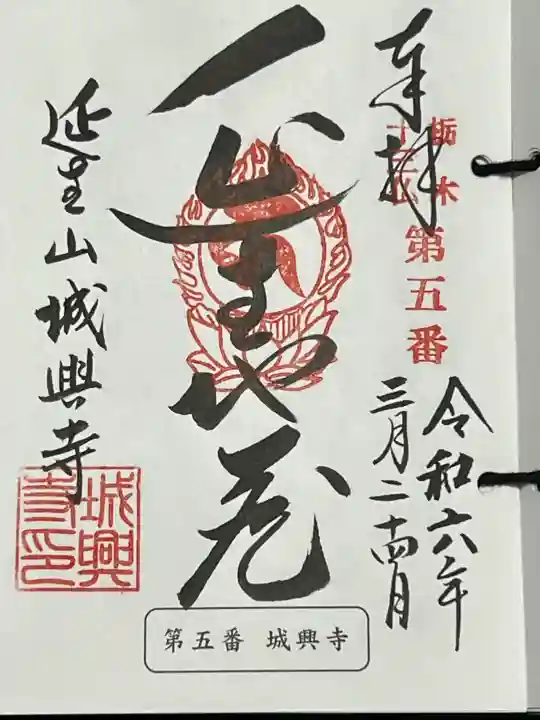 奉拝
栃木
十三仏
第五番
令和六年
三月二十四日
地蔵
延生山城興寺
城興
寺印
第五番 城興寺